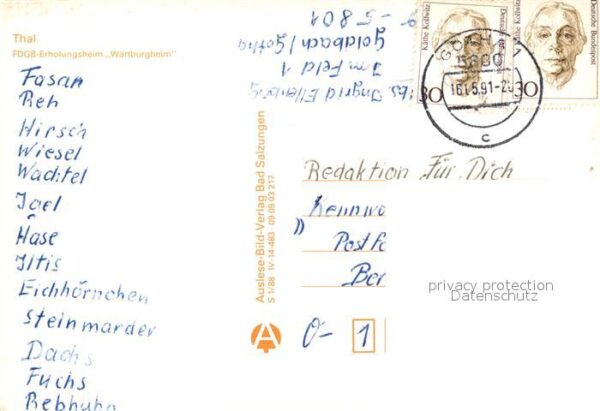 Thal
FDGB-Erholungsheim „Wartburgheim"
Fasan
Reh
Hirsch
Wiesel
Wachtel
Igel
Hase
Iltis
Eichhörnchen
Steinmarder
Dachs
Fuchs
Rebhuhn
Abs. Ingrid
Im Feld 1
Goldbach/Gotha
O-5801
Auslese-Bild-Verlag Bad Salzungen
S 1/88 IV-14-483 09 09 03 217
Käthe Kollwitz
Deutsche Bundespost
30
Käthe Kollwitz
Deutsche Bundespost
30
GOTHA 1
5800
16.5.91-20
c
Redaktion Für Dich
Kennwo
Postfa
Ber
O- 1
privacy protection
Datenschutz